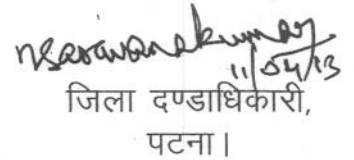 nsaravanakumar
11/04/13
जिला दण्डाधिकारी,
पटना।